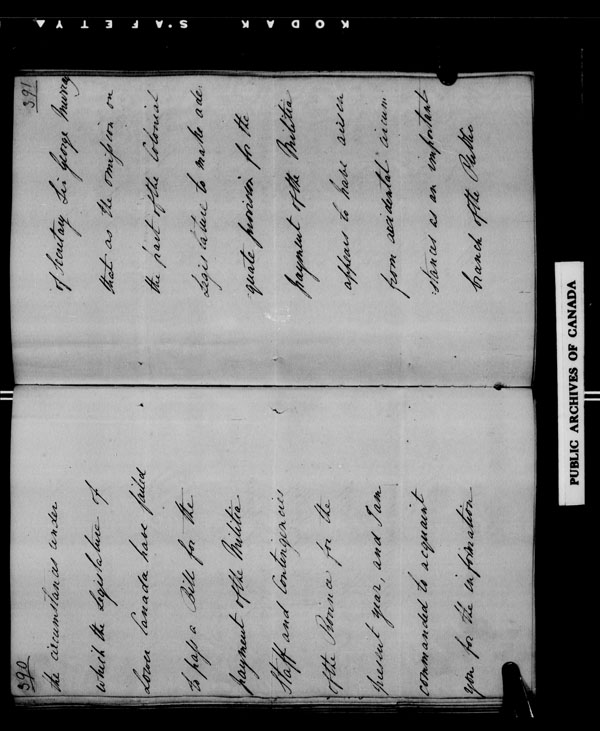 390
the circumstances under
which the Legislature of
Lower Canada have failed
to pass a Bill for the
payment of the Militia
Staff and Contingencies
of the Province for the
present year, and I am
commanded to acquaint
you for the information
391
of Secretary Sir George Murray
that as the omission on
the part of the Colonial
Legislature to make ade
quate provision for the
payment of the Militia
appears to have arisen
from accidental circum
stances as an important
branch of the Public
PUBLIC ARCHIVES OF CANADA
KODAK S'AFETY